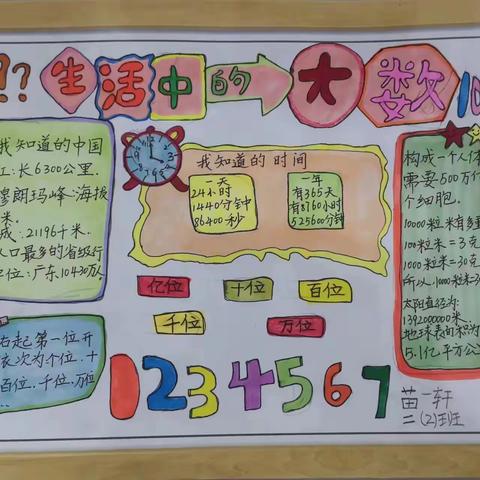 ?? 生活中的大数 10
我知道的中国
江:长6300公里.
穆朗玛峰:海拔
米.
成:21196千米.
人口最多的省级行
位:广东,10430万人
右起第一位开
依次为个位.十
百位.千位.万位
我知道的时间
一天
24小时
1440分钟
86400秒
一年
有365天
有8760小时
525600分钟
亿位
十位
百位
千位
万位
01234567
构成一个人体
需要500万
个细胞.
10000粒米有多重
100粒米=3克
1000粒米=30克
所以.10000粒米=3
太阳直径为:
1392000000米.
地球表面积为
5.1亿平方公
苗一轩
二(2)班